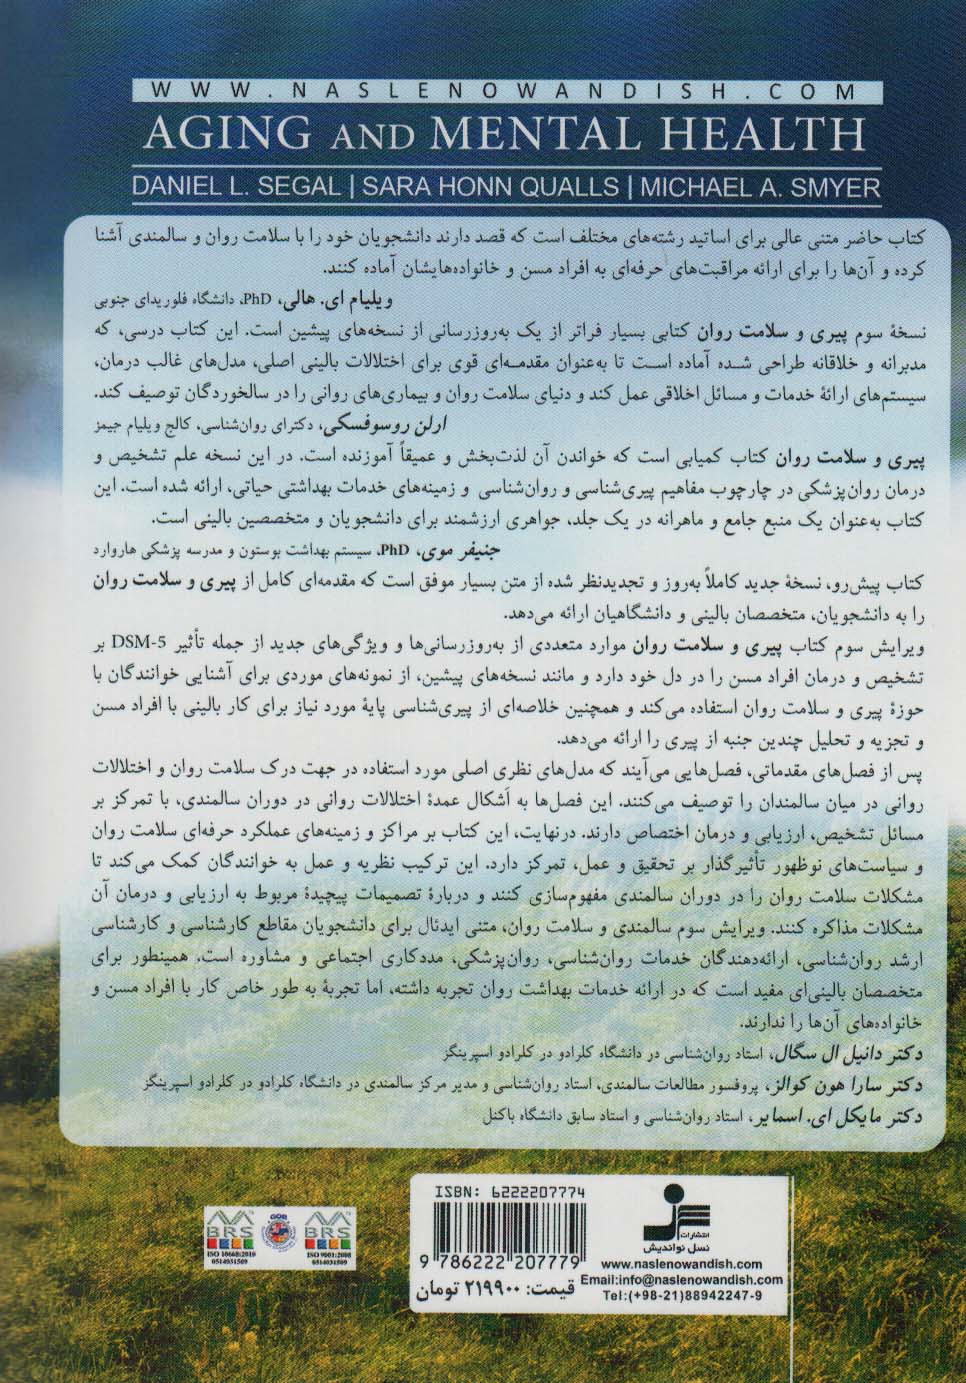 WWW.NASLENOWANDISH.COM
AGING AND MENTAL HEALTH
DANIEL L. SEGAL | SARA HONN QUALLS | MICHAEL A. SMYER
کتاب حاضر متنی عالی برای اساتید رشته‌های مختلف است که قصد دارند دانشجویان خود را با سلامت روان و سالمندی آشنا
کرده و آن‌ها را برای ارائه مراقبت‌های حرفه‌ای به افراد مسن و خانواده‌هایشان آماده کنند.
ویلیام ای. هالی، PhD، دانشگاه فلوریدای جنوبی
نسخهٔ سوم پیری و سلامت روان کتابی بسیار فراتر از یک به‌روزرسانی از نسخه‌های پیشین است. این کتاب درسی، که
مدبرانه و خلاقانه طراحی شده آماده است تا به‌عنوان مقدمه‌ای قوی برای اختلالات بالینی اصلی، مدل‌های غالب درمان،
سیستم‌های ارائهٔ خدمات و مسائل اخلاقی عمل کند و دنیای سلامت روان و بیماری‌های روانی را در سالخوردگان توصیف کند.
ارلن روسوفسگی، دکترای روان‌شناسی، کالج ویلیام جیمز
پیری و سلامت روان کتاب کمیابی است که خواندن آن لذت‌بخش و عمیقاً آموزنده است. در این نسخه علم تشخیص و
درمان روان‌پزشکی در چارچوب مفاهیم پیری‌شناسی و روان‌شناسی و زمینه‌های خدمات بهداشتی حیاتی، ارائه شده است. این
کتاب به‌عنوان یک منبع جامع و ماهرانه در یک جلد، جواهری ارزشمند برای دانشجویان و متخصصین بالینی است.
جنیفر موی، PhD، سیستم بهداشت بوستون و مدرسه پزشکی هاروارد
کتاب پیش‌رو، نسخهٔ جدید کاملاً به‌روز و تجدیدنظر شده از متن بسیار موفق است که مقدمه‌ای کامل از پیری و سلامت روان
را به دانشجویان، متخصصان بالینی و دانشگاهیان ارائه می‌دهد.
ویرایش سوم کتاب پیری و سلامت روان موارد متعددی از به‌روزرسانی‌ها و ویژگی‌های جدید از جمله تأثیر DSM-5 بر
تشخیص و درمان افراد مسن را در دل خود دارد و مانند نسخه‌های پیشین، از نمونه‌های موردی برای آشنایی خوانندگان با
حوزهٔ پیری و سلامت روان استفاده می‌کند و همچنین خلاصه‌ای از پیری‌شناسی پایهٔ مورد نیاز برای کار بالینی با افراد مسن
و تجزیه و تحلیل چندین جنبه از پیری را ارائه می‌دهد.
پس از فصل‌های مقدماتی، فصل‌هایی می‌آیند که مدل‌های نظری اصلی مورد استفاده در جهت درک سلامت روان و اختلالات
روانی در میان سالمندان را توصیف می‌کنند. این فصل‌ها به اَشکال عمدهٔ اختلالات روانی در دوران سالمندی، با تمرکز بر
مسائل تشخیص، ارزیابی و درمان اختصاص دارند. درنهایت، این کتاب بر مراکز و زمینه‌های عملکرد حرفه‌ای سلامت روان
و سیاست‌های نوظهور تأثیرگذار بر تحقیق و عمل، تمرکز دارد. این ترکیب نظریه و عمل به خوانندگان کمک می‌کند تا
مشکلات سلامت روان را در دوران سالمندی مفهوم‌سازی کنند و دربارهٔ تصمیمات پیچیدهٔ مربوط به ارزیابی و درمان آن
مشکلات مذاکره کنند. ویرایش سوم سالمندی و سلامت روان، متنی ایدئال برای دانشجویان مقاطع کارشناسی و کارشناسی
ارشد روان‌شناسی، ارائه‌دهندگان خدمات روان‌شناسی، روان‌پزشکی، مددکاری اجتماعی و مشاوره است. همینطور برای
متخصصان بالینی‌ای مفید است که در ارائه خدمات بهداشت روان تجربه داشته، اما تجربهٔ به طور خاص کار با افراد مسن و
خانواده‌های آن‌ها را ندارند.
دکتر دانیل ال سگال، استاد روان‌شناسی در دانشگاه کلرادو در کلرادو اسپرینگز
دکتر سارا هون کوالز، پروفسور مطالعات سالمندی، استاد روان‌شناسی و مدیر مرکز سالمندی در دانشگاه کلرادو در کلرادو اسپرینگز
دکتر مایکل ای. اسمایر، استاد روان‌شناسی و استاد سابق دانشگاه باکنل
ISBN: 6222207774
9 786222 207779
قیمت: ۲۱۹۹۰۰ تومان
انتشارات
نسل نواندیش
www.naslenowandish.com
Email:info@naslenowandish.com
Tel:(+98-21)88942247-9
BRS
ISO 10668:2010
0514031509
GOB
BRS
ISO 9001:2008
0514031509